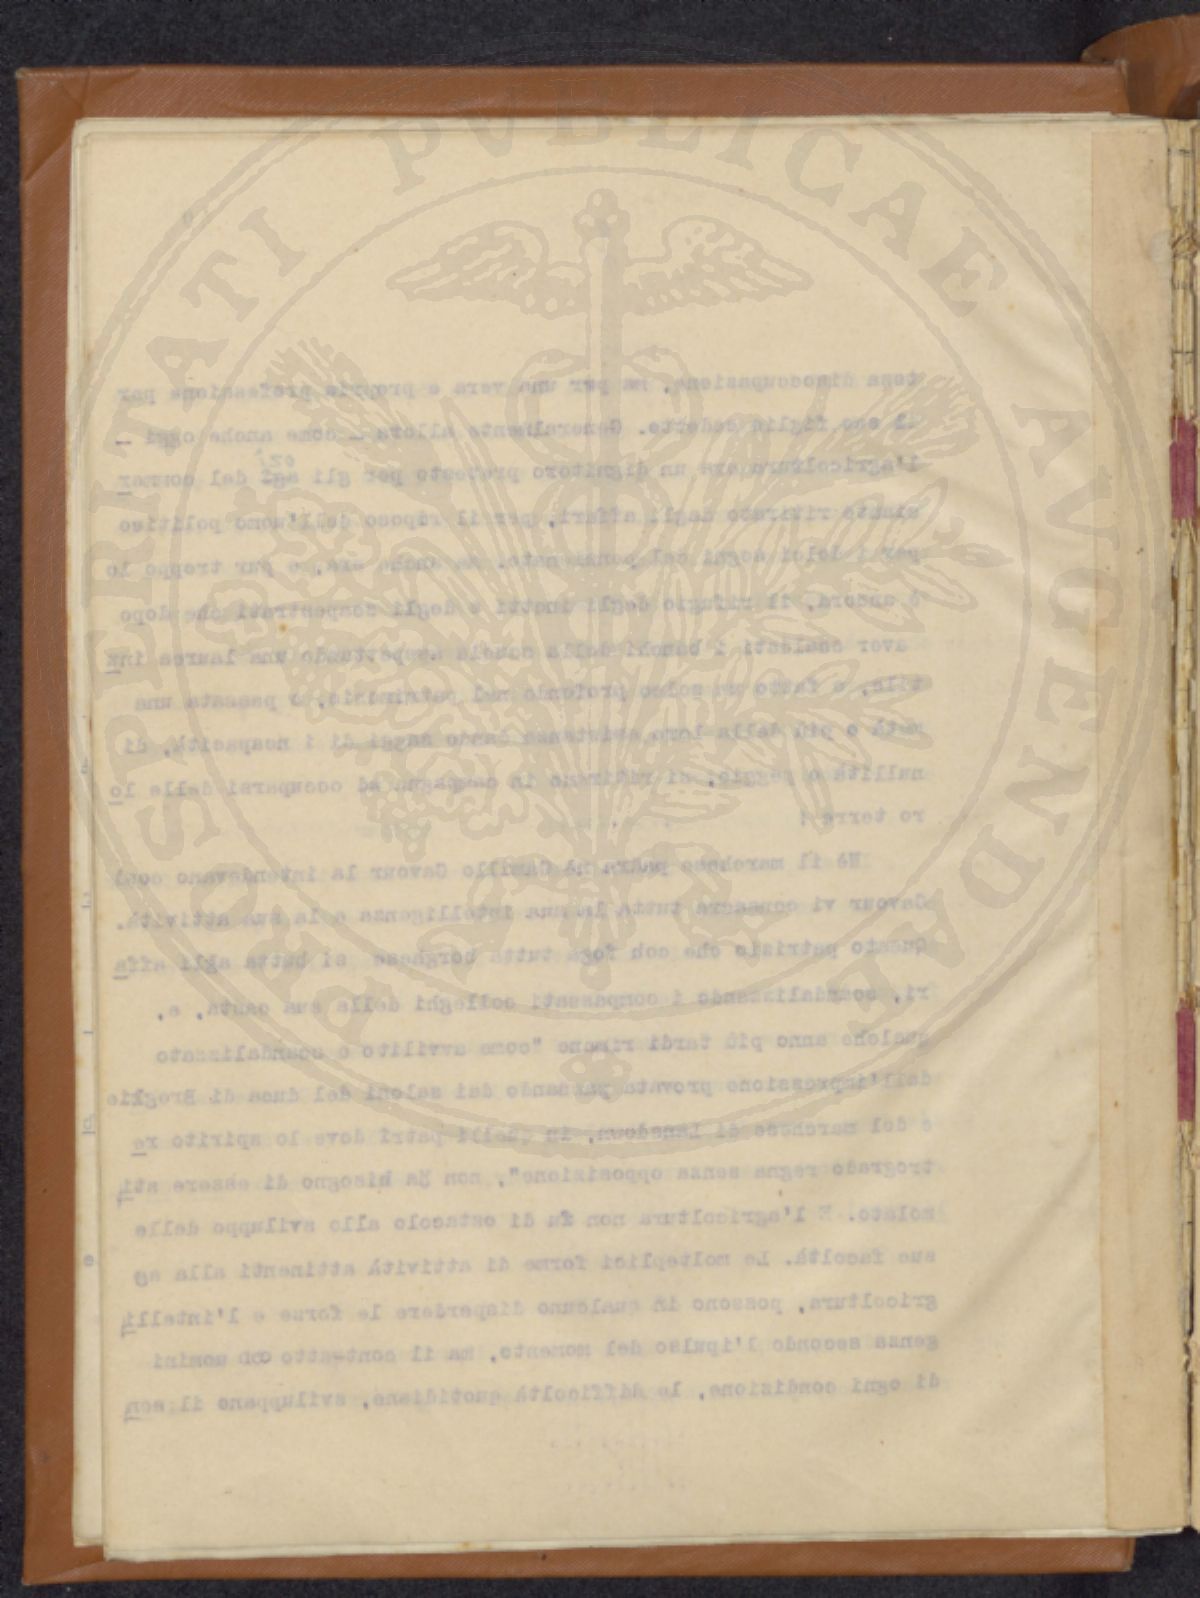 PROSPERITATI PUBLICAE AVGENDAE
tesa disoccupazione, ma per una vera e propria professione per
il suo figlio cadetto. Generalmente allora - come anche oggi -
l'agricoltura era un dignitoso pretesto per gli ozi del commer
ciante ritirato dagli affari, per il riposo dell'uomo politico
per i dolci sogni del pensionato. Ma anche era, e pur troppo lo
è ancora, il rifugio degli inetti e degli scapestrati che dopo
aver scaldati i banchi della scuola aspettando una laurea inu
tile, e fatto un solco profondo nel patrimonio, e passata una
metà e più della loro esistenza dando saggi di i ncapacità, di
nullità o peggio, si ritirano in campagna ad occuparsi delle lo
ro terre !
Nè il marchese padre nè Camillo Cavour la intendevano così
Cavour vi consacra tutta la sua intelligenza e la sua attività.
Questo patrizio che con foga tutta borghese si butta agli affa
ri, scandalizzando i compassati colleghi della sua casta, e,
qualche anno più tardi rimane "come avvilito e scandalizzato
dall'impressione provata passando dai saloni del duca di Broglie
e del marchese di Lansdown, in quelli patri dove lo spirito re
trogrado regna senza opposizione", non ha bisogno di essere sti
molato. E l'agricoltura non fu di ostacolo allo sviluppo delle
sue facoltà. Le molteplici forme di attività attinenti alla ag
gricoltura, possono in qualcuno disperdere le forze e l'intelli
genza secondo l'ipulso del momento, ma il contatto con uomini
di ogni condizione, le difficoltà quotidiane, sviluppano il sen